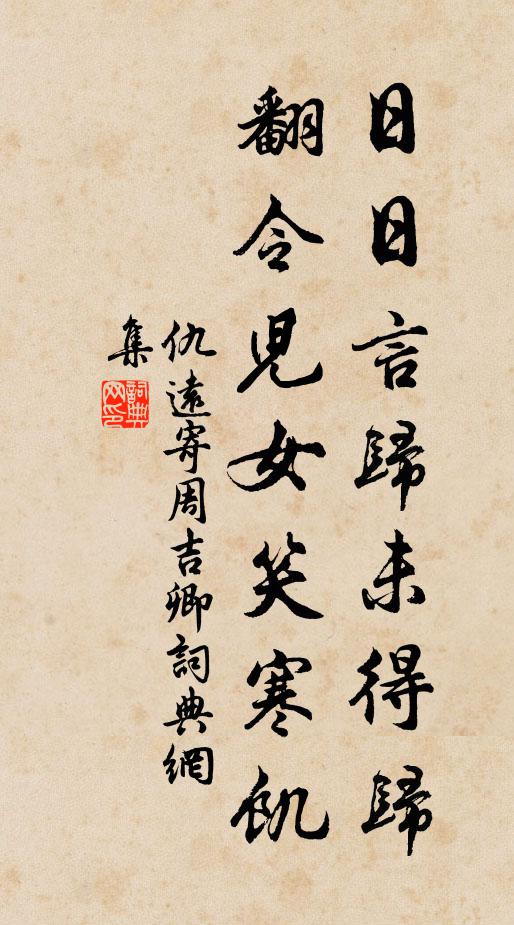 日日言歸未得歸
翻令兒女笑寒飢
仇遠寄周吉卿詞典網
集
詞典
网印